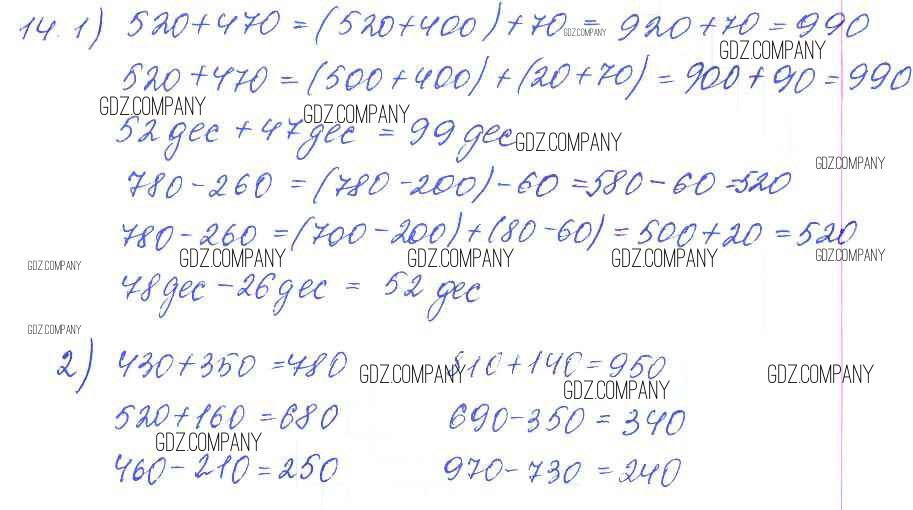 14. 1) 520+470 = (520+400)+70 = 920+70 = 990
GDZ.COMPANY
GDZ.COMPANY
520+470 = (500+400)+(20+70) = 900+90 = 990
GDZ.COMPANY GDZ.COMPANY
52 дес + 47 дес = 99 дес GDZ.COMPANY
GDZ.COMPANY
780-260 = (780-200)-60 = 580-60 = 520
780-260 = (700-200)+(80-60) = 500+20 = 520
GDZ.COMPANY GDZ.COMPANY GDZ.COMPANY GDZ.COMPANY GDZ.COMPANY
78 дес - 26 дес = 52 дес
GDZ.COMPANY
2) 430+350 = 780 810+140 = 950
GDZ.COMPANY GDZ.COMPANY GDZ.COMPANY
520+160 = 680 690-350 = 340
GDZ.COMPANY
460-210 = 250 970-730 = 240